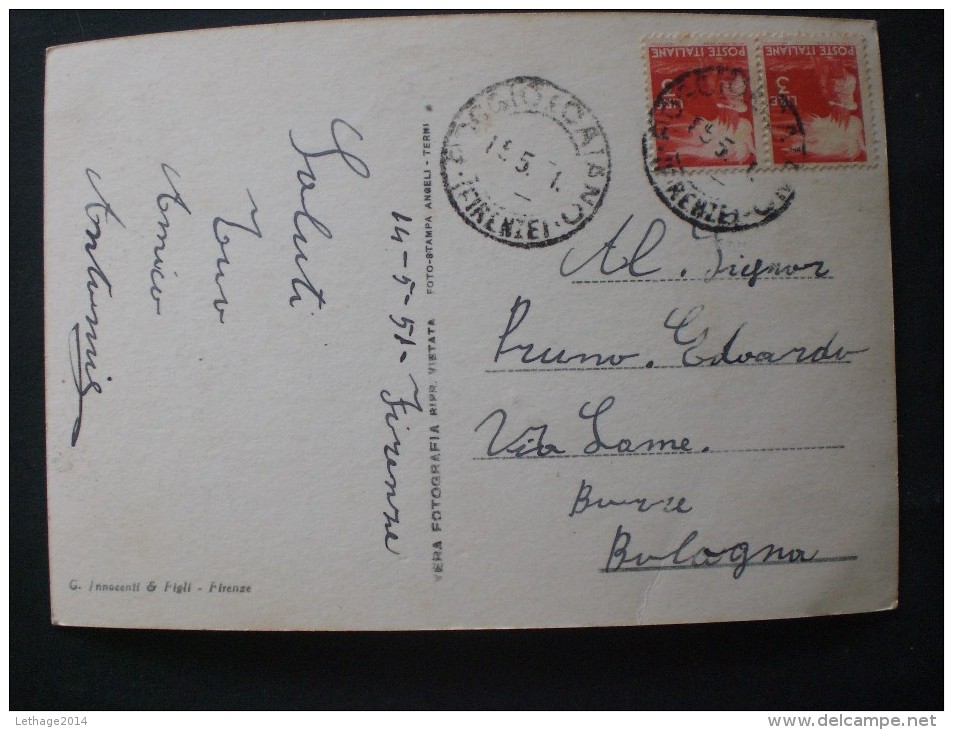 Saluti
Tuo
Amico
Antonio
14-5-51- Firenze
VERA FOTOGRAFIA RIPR. VIETATA FOTO-STAMPA ANGELI - TERNI
G. Innocenti & Figli - Firenze
POSTE ITALIANE
3
LIRE
POSTE ITALIANE
3
LIRE
POGGIO A CAIANO
(FIRENZE)
15.5.
Al. Signor
Bruno. Edoardo
Via Lame.
Bologna
Lethage2014
delcampe.net